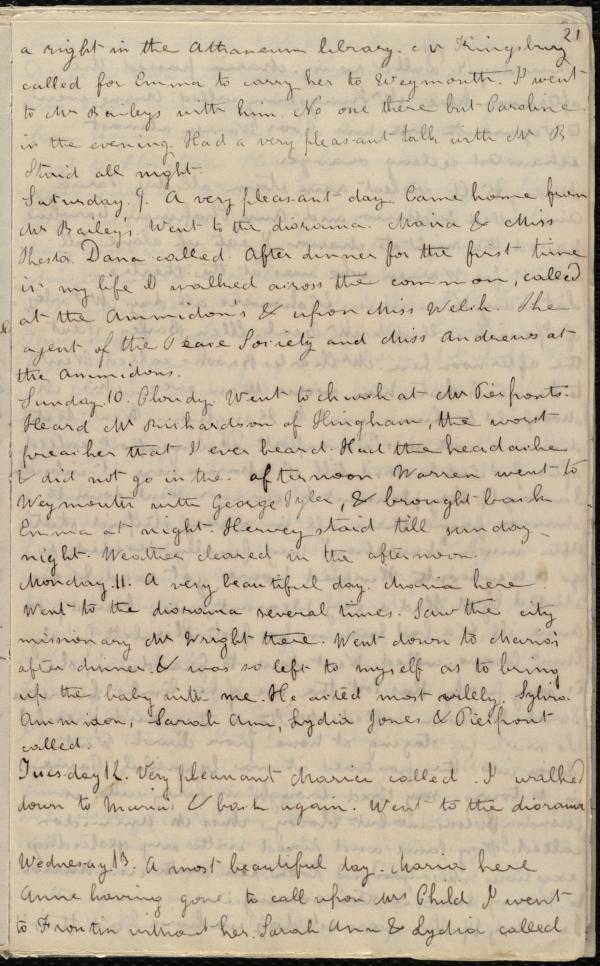 21
a right in the Athraneum library. Mr Kingsbury
called for Emma to carry her to Weymouth. I went
to Mr Baileys with him. No one there but Caroline
in the evening. Had a very pleasant talk with Mr B
Staid all night.
Saturday. 9. A very pleasant day Came home from
Mr Bailey's. Went to the diorama. Maria & Miss
Thesta Dana called. After dinner for the first time
in my life I walked across the common, called
at the Ammidon's & upon Miss Welsh. The
agent of the Peace Society and Miss Andrews at
the Ammidons.
Sunday 10. Cloudy. Went to church at Mr Pierponts.
Heard Mr Richardson of Hingham, the worst
preacher that I ever heard. Had the headache
& did not go in the afternoon. Warren went to
Weymouth with George Tyler, & brought back
Emma at night. Hervey staid till sunday
night. Weather cleared in the afternoon.
Monday. 11. A very beautiful day. Maria here
Went to the diorama several times. Saw the city
missionary Mr Wright there. Went down to Maria's
after dinner. & was so left to myself as to bring
up the baby with me. He acted most vilely. Sylvia
Ammidon, Sarah Ann, Lydia Jones & Pierpont
called.
Tuesday 12. Very pleasant Maria called. I walked
down to Maria's & back again. Went to the diorama
Wednesay. 13. A most beautiful day. Maria here
Anne having gone to call upon Mrs Child I went
to Frontin without her. Sarah Ann & Lydia called